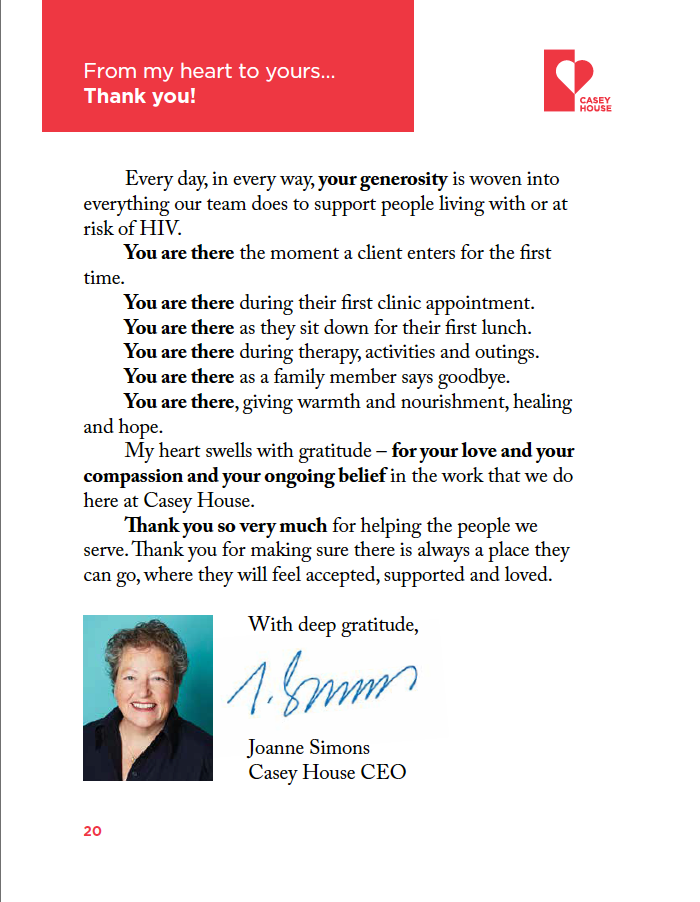 From my heart to yours...
Thank you!
CASEY
HOUSE
Every day, in every way, your generosity is woven into
everything our team does to support people living with or at
risk of HIV.
You are there the moment a client enters for the first
time.
You are there during their first clinic appointment.
You are there as they sit down for their first lunch.
You are there during therapy, activities and outings.
You are there as a family member says goodbye.
You are there, giving warmth and nourishment, healing
and hope.
My heart swells with gratitude – for your love and your
compassion and your ongoing belief in the work that we do
here at Casey House.
Thank you so very much for helping the people we
serve. Thank you for making sure there is always a place they
can go, where they will feel accepted, supported and loved.
With deep gratitude,
J. Simons
Joanne Simons
Casey House CEO
20